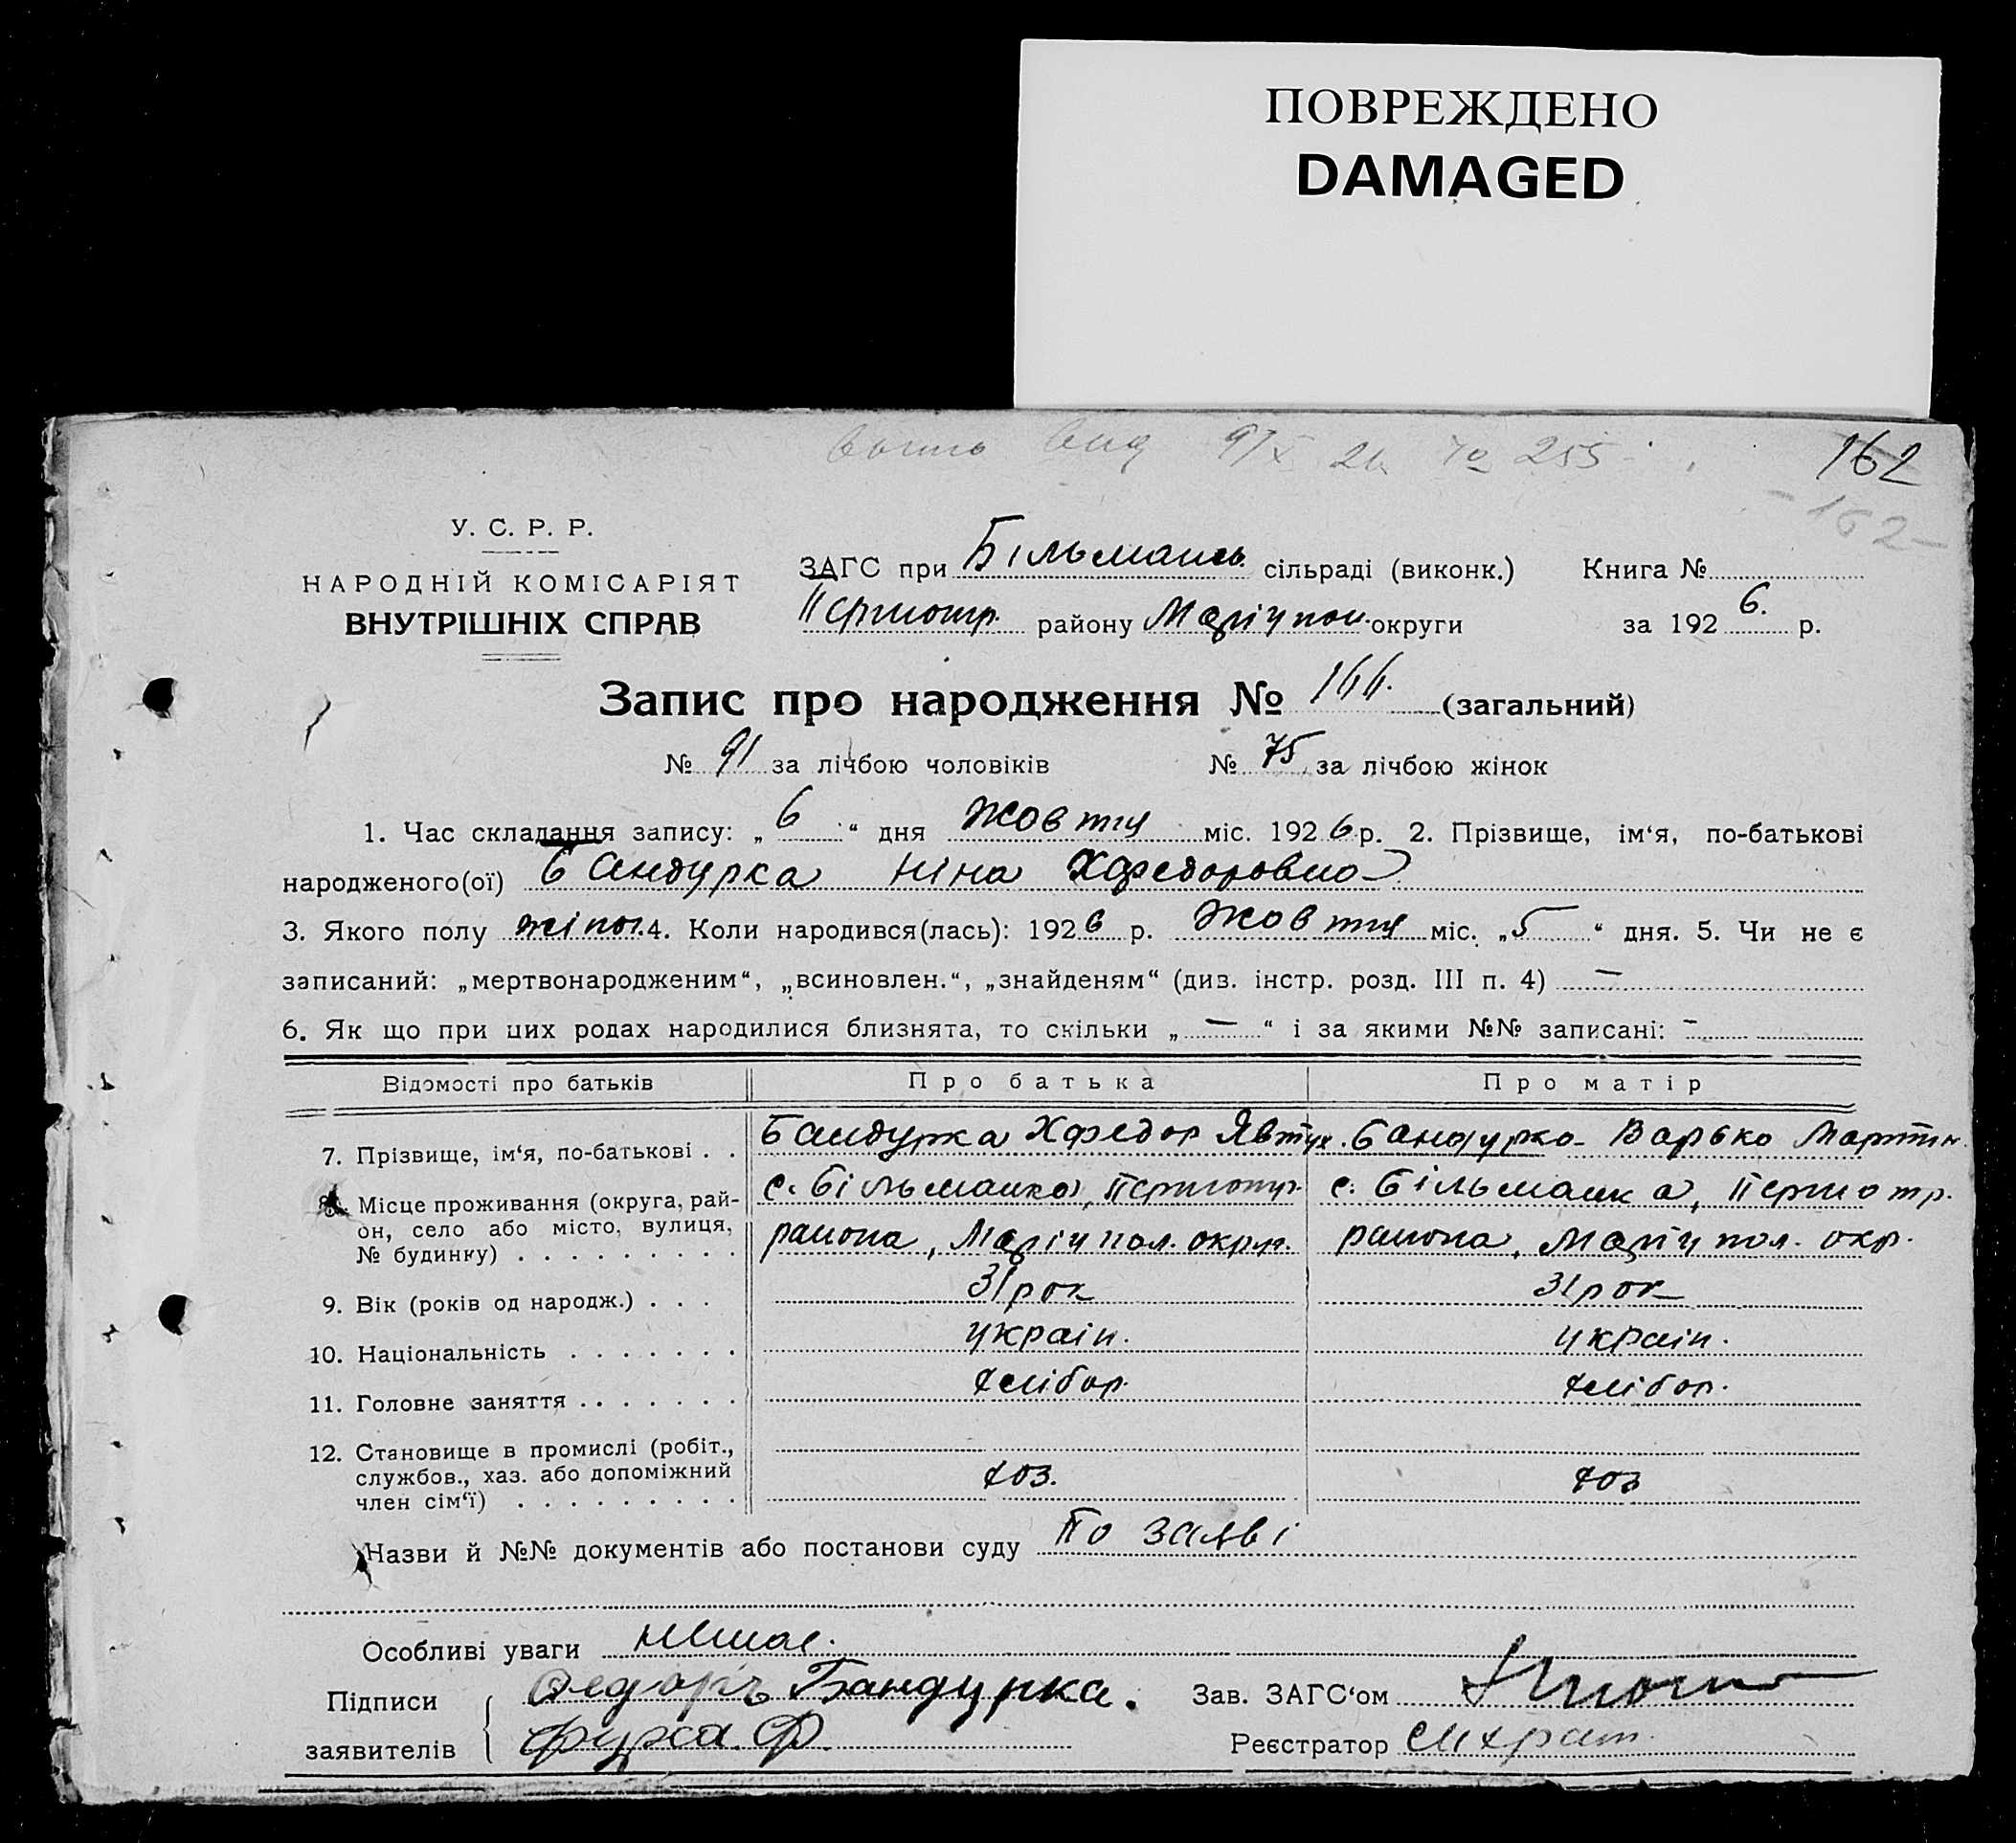 ПОВРЕЖДЕНО
DAMAGED
9/X 26 № 255
162
162
У. С. Р. Р.
НАРОДНІЙ КОМІСАРІЯТ
ВНУТРІШНІХ СПРАВ
ЗАГС при Більмансь. сільраді (виконк.) Книга №
Першотр. району Маріупол. округи за 1926. р.
Запис про народження № 166. (загальний)
№ 91 за лічбою чоловіків № 75 за лічбою жінок
1. Час складання запису: „6“ дня Жовтня міс. 1926 р. 2. Прізвище, ім‘я, по-батькові
народженого(ої) Бандурка Ніна Хфедоровна
3. Якого полу жіноч. 4. Коли народився(лась): 1926 р. Жовтня міс. „5“ дня. 5. Чи не є
записаний: „мертвонародженим“, „всиновлен.“, „знайденям“ (див. інстр. розд. III п. 4) —
6. Як що при цих родах народилися близнята, то скільки „—“ і за якими №№ записані: –
Відомості про батьків Про батька Про матір
7. Прізвище, ім‘я, по-батькові . . Бандурка Хфедор Явтух. Бандурко Варько Мартин.
8. Місце проживання (округа, рай- с. Більманка, Першотр. с. Більманка, Першотр.
он, село або місто, вулиця,
№ будинку) . . . . . . . . . района, Маріупол. окрг. района, Маріупол. окр.
9. Вік (років од народж.) . . . 31 рок 31 рок
10. Національність . . . . . . . україн. україн.
11. Головне заняття . . . . . . . хлібор. хлібор.
12. Становище в промислі (робіт.,
службов., хаз. або допоміжний хоз. хоз
член сім‘ї) . . . . . . . . .
Назви й №№ документів або постанови суду По заяві
Особливі уваги немає.
Підписи Федоръ Бандурка. Зав. ЗАГС‘ом
заявителів Ф. Реєстратор